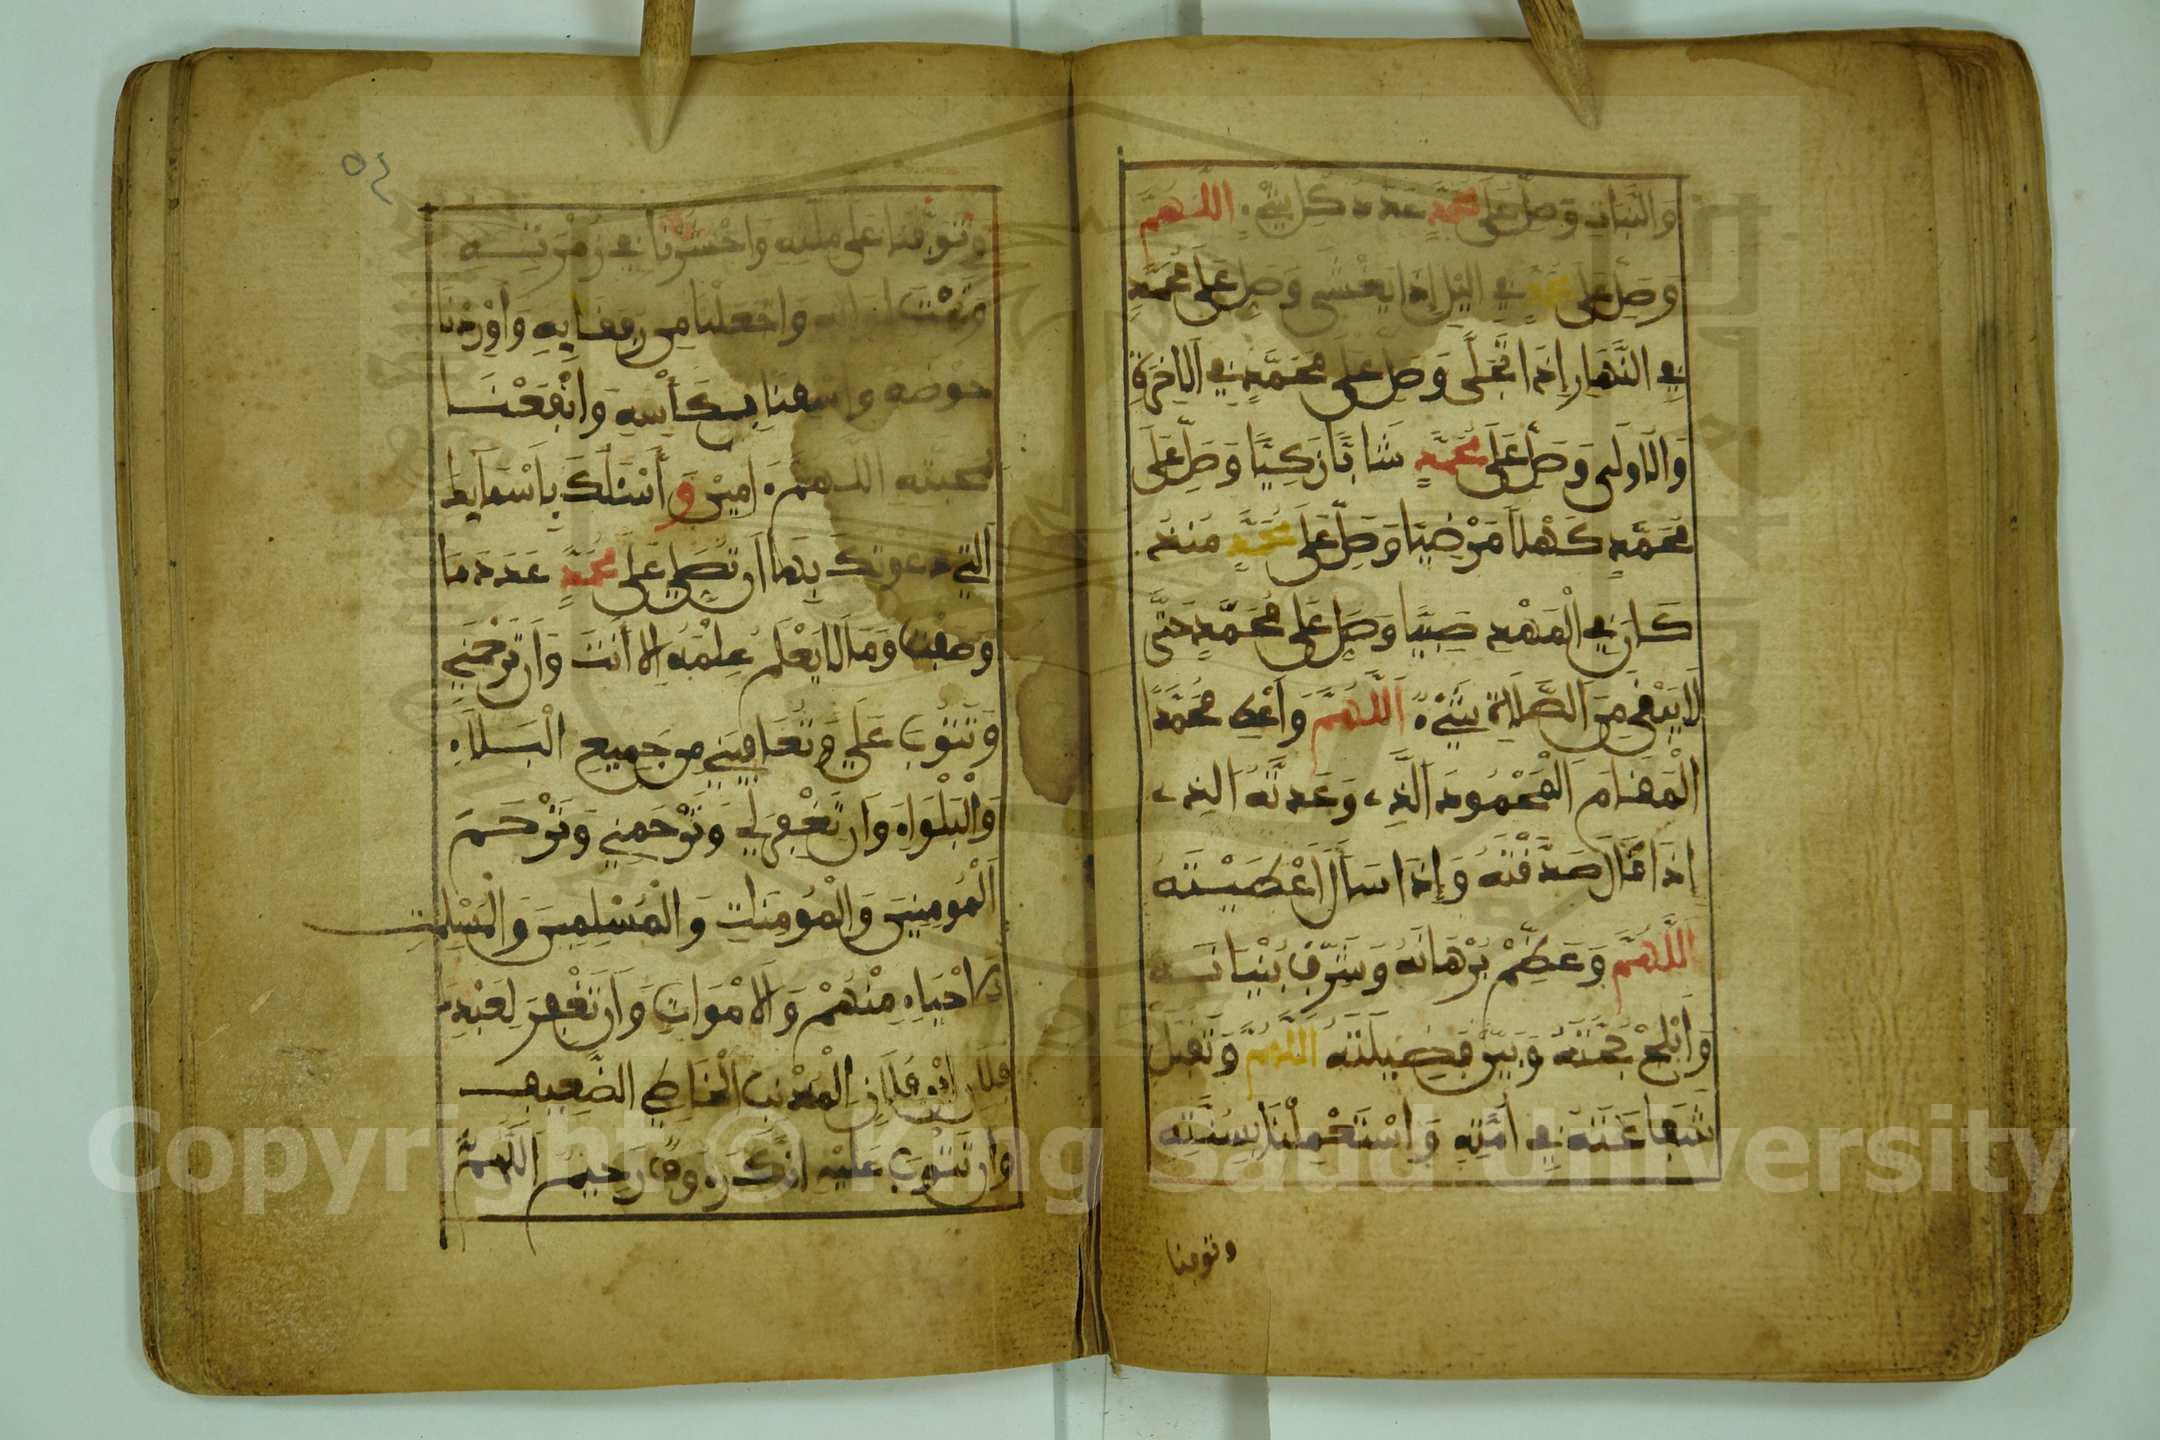 والنبات وصل على محمد عدد كل شيء اللهم
وصل على محمد في اليل إذا يغشى وصل على محمد
في النهار إذا تجلى وصل على محمد في الاخرة
والاولى وصل على محمد شابا زكيا وصل على
محمد كهلا مرضيا وصل على محمد منذ
كان في المهد صبيا وصل على محمد حتى
لا يبقى من الصلاة شيء اللهم واعط محمدا
المقام المحمود الذي وعدته الذي
إذا قال صدقته وإذا سأل اعطيته
اللهم وعظم برهانه وشرف بنيانه
وابلج حجته وبين فضيلته اللهم وتقبل
شفاعته في امته واستعملنا بسنته
وتوفنا
٥٤
وتوفنا على ملته واحشرنا في زمرته
وتحت لوائه واجعلنا من رفقايه واوردنا
حوضه واسقنا بكأسه وانفعنا
بمحبته اللهم امين وأسئلك باسمايك
التي دعوتك بها ان تصلي على محمد عدد ما
وصفت ومما لا يعلم علمه الا انت وان ترحمني
وتتوب علي وتعافيني من جميع البلاء
والبلواء وان تغفر لي وترحمني وترحم
المومنين والمومنات والمسلمين والمسلمت
الاحياء منهم والاموات وان تغفر لعبدك
فلان ابن فلان المذنب الخاطي الضعيف
وان تتوب عليه انك غفور رحيم اللهم
Copyright © King Saud University
1957